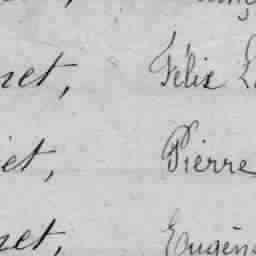 net, Félix
iet, Pierre
net, Eugène